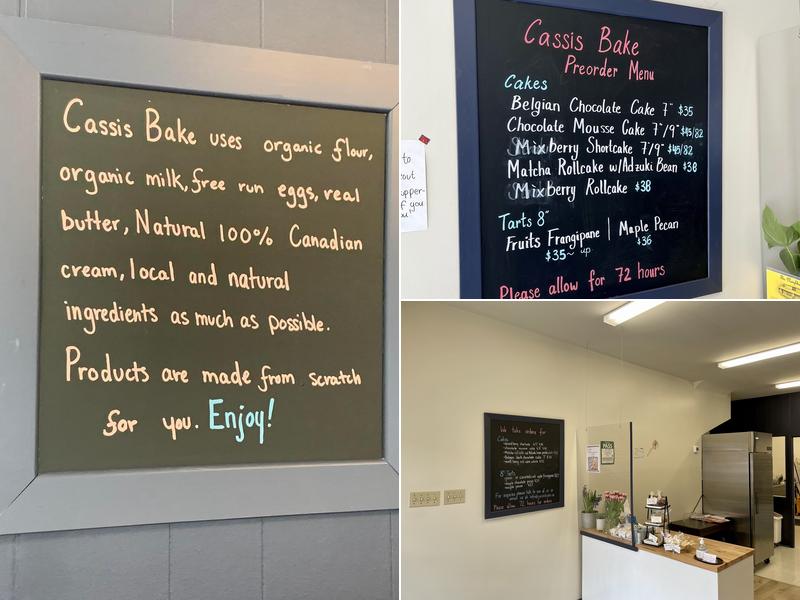 Cassis Bake uses organic flour,
organic milk, free run eggs, real
butter, Natural 100% Canadian
cream, local and natural
ingredients as much as possible.
Products are made from scratch
for you. Enjoy!
Cassis Bake
Preorder Menu
Cakes
Belgian Chocolate Cake 7" $35
Chocolate Mousse Cake 7"/9" $45/82
Mixberry Shortcake 7"/9" $45/82
Matcha Rollcake w/Adzuki Bean $38
Mixberry Rollcake $38
Tarts 8"
Fruits Frangipane | Maple Pecan
$35~ up $36
Please allow for 72 hours
to
out
upper-
if you
ou!
We take orders for
Cakes
8" Tarts
Please allow 72 hours for orders
PASS